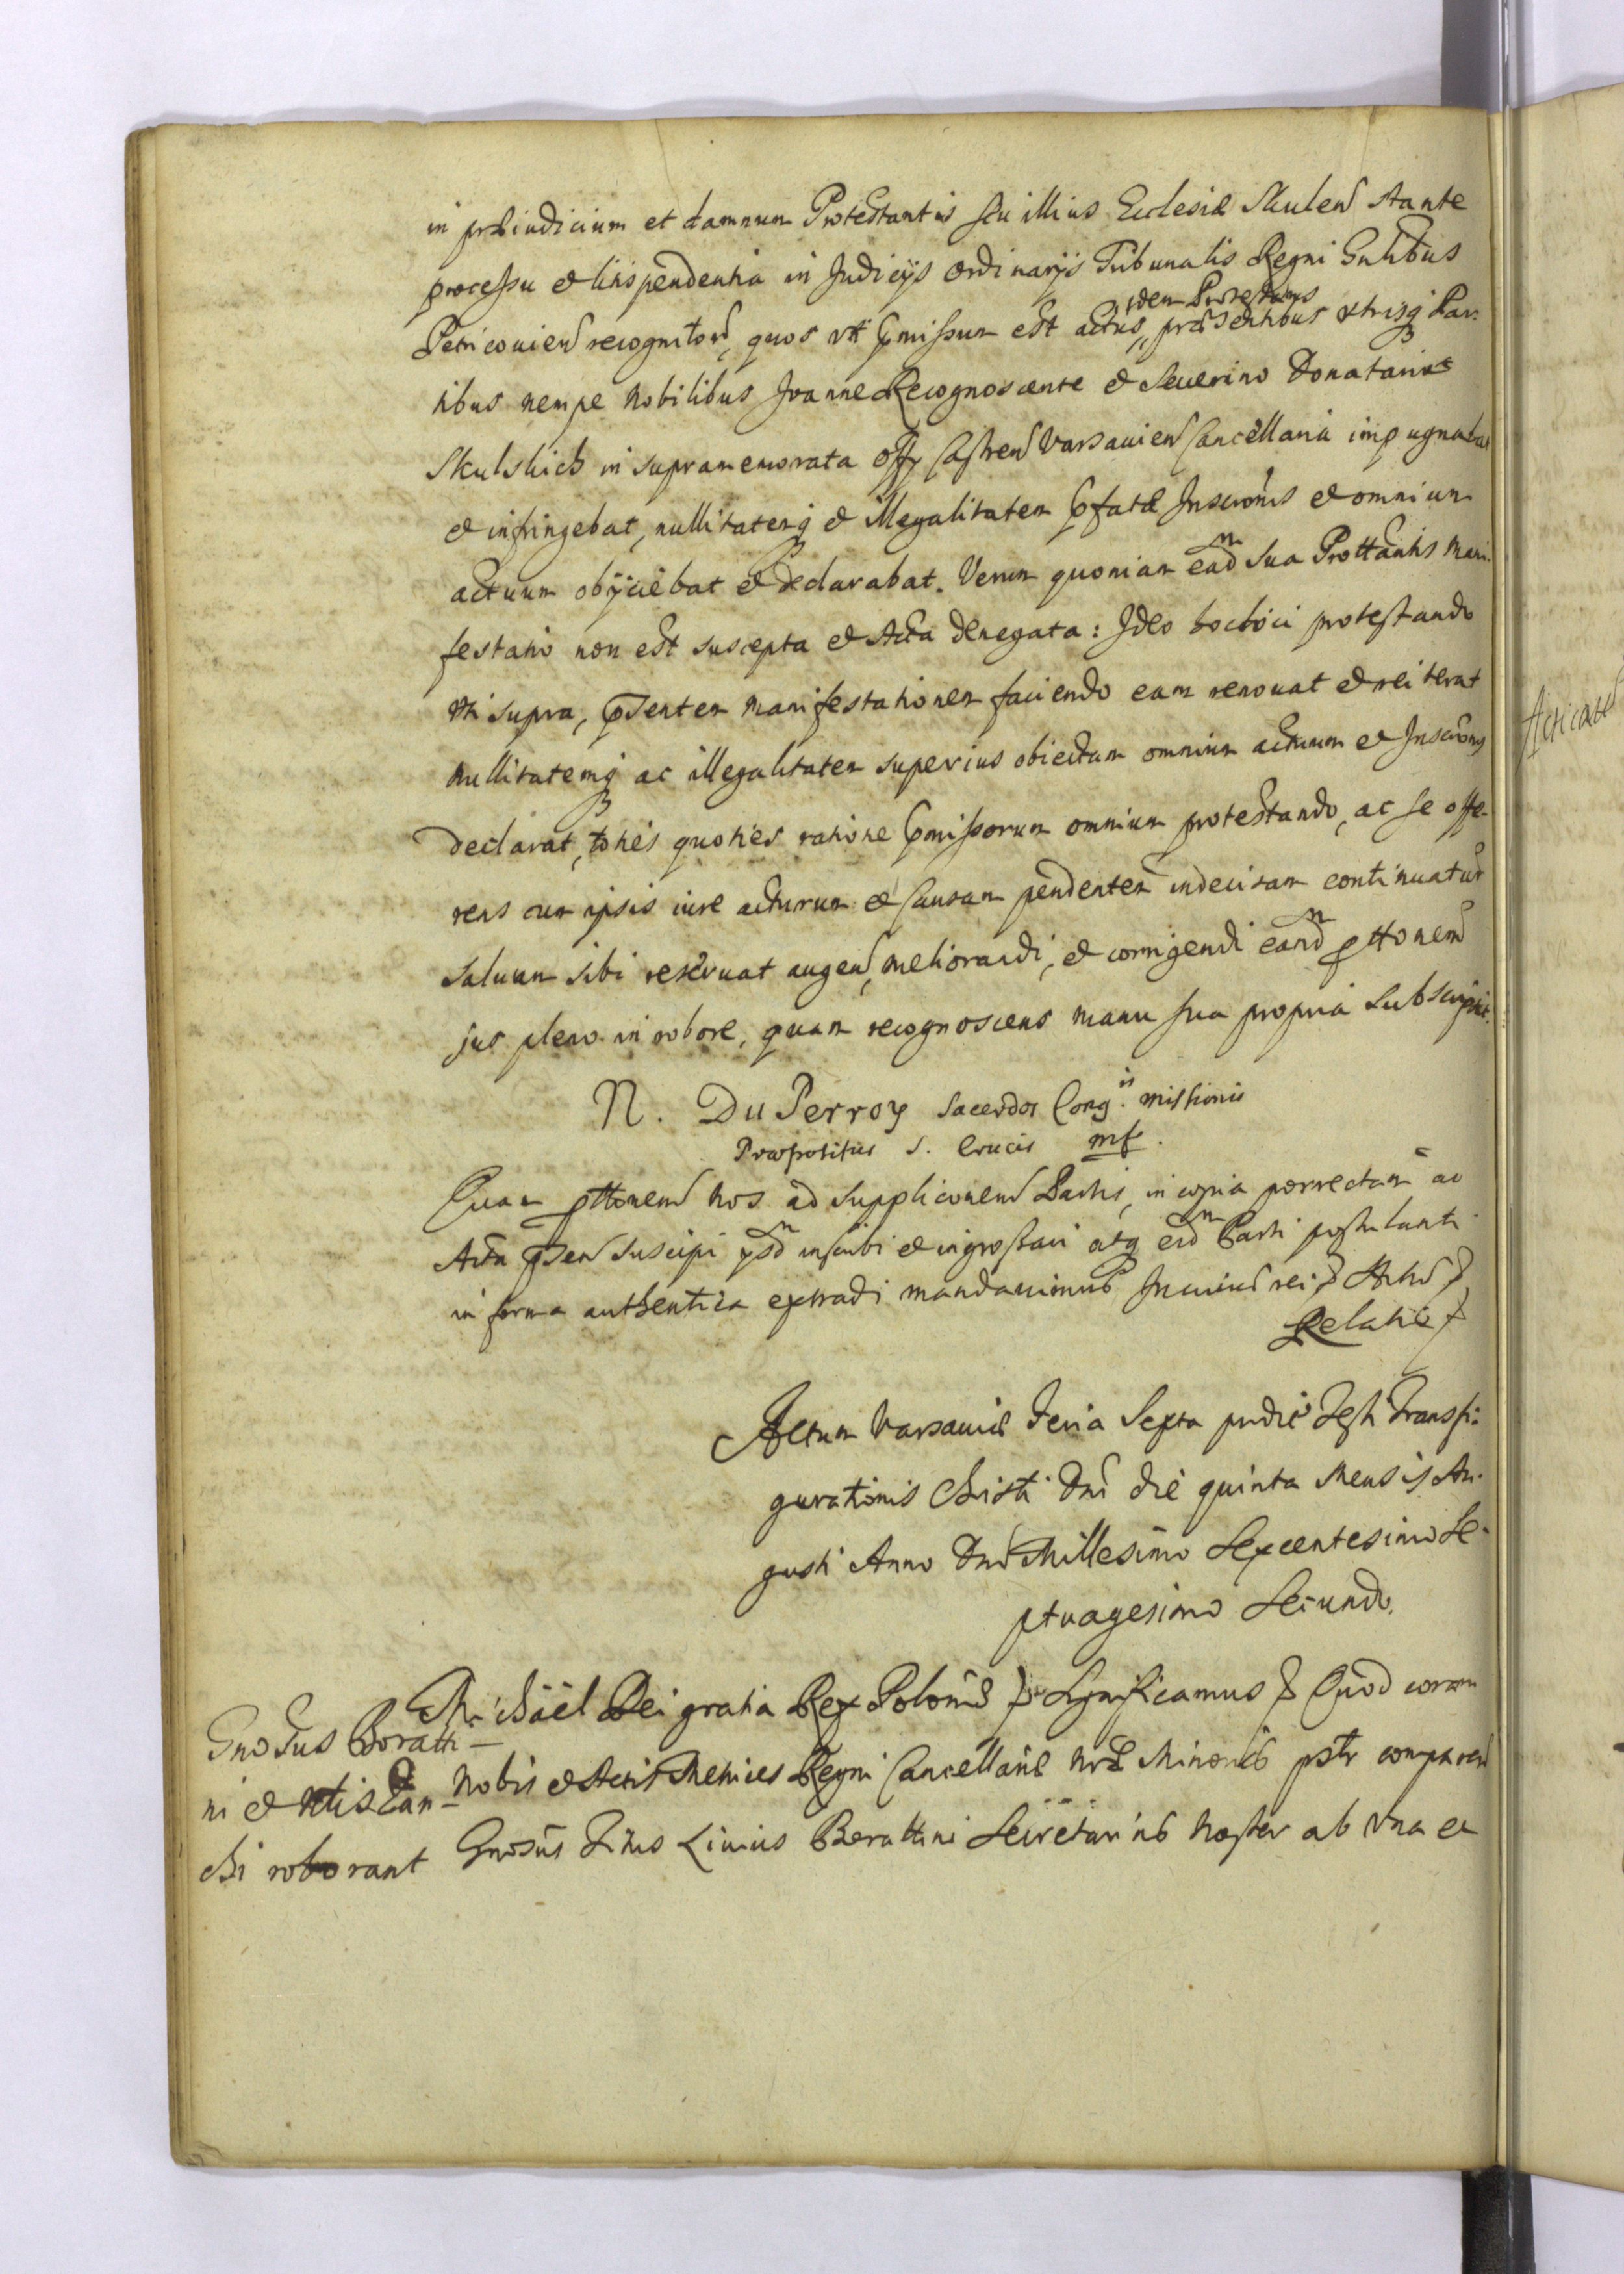 in præiudicium et damnum Protestantis seu illius Ecclesiæ Skulen stante
processu et litispendentia in Judicijs ordinarijs Tribunalis Regni Gnlibus
idem Protestans
Petricouien recognitor, quos vti pmissum est actus, præsentibus vtrisq Par-
tibus nempe Nobilibus Joanne Recognoscente et Seuerino Donatario
Skulskich in supramemorata Offy Castren Varsauien Cancellaria impugnabat
et infringebat, nullitatemq et illegalitatem pfatæ Inscronis et omnium
actuum obijciebat et declarabat. Verum quoniam ead sua Prottantis Mani-
festatio non est suscepta et Acta denegata: Ideo hocloci protestando
vti supra, psentem manifestationem faciendo eam renouat et reiterat
nullitatemq ac illegalitatem superius obiectam omnium actuum et Inscronis
declarat, toties quoties ratione pmissorum omnium protestando, ac se offe-
rens cum ipsis iure acturum et Causam pendentem indecisam continuatur
saluum sibi reseruat augen, meliorandi, et corrigendi eand pttonem
jus pleno in robore, quam recognoscens manu sua propria subscripsit.
N. Du Perroy Sacerdos Cong.is missionis
Præpositus S. Crucis mp.
Quam pttonem Nos ad suppliconem Partis, in copia porrectam ac
Actis psen suscipi ipsd inscribi et ingrossari atq eid Parti postulanti
in forma authentica extradi mandauimus In cuius rei Actu
Relatio
Actum Varsauiæ Feria Sexta pridie Festi Transfi-
gurationis Christi Dni die quinta Mensis Au-
gusti Anno Dni Millesimo Sexcentesimo Se-
ptuagesimo Secundo.
Michaël Dei gratia Rex Poloniæ Significamus Quod coram
Gnosus Boratti-
ni et Actis Can-
chi roborant
Nobis et Actis Metrices Regni Cancellariæ Nræ Minoris pstr comparen
Gnosus Titus Liuius Borattini Secretarius Noster ab vna et
Acticatio